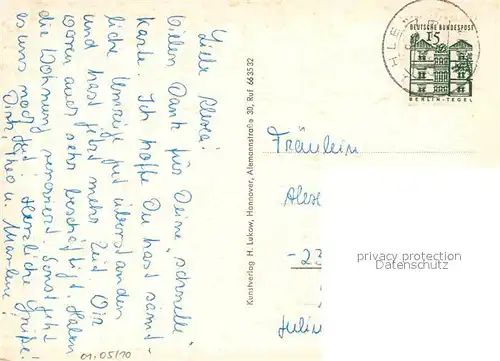 Liebe Alexa!
Vielen Dank für Deine "schnelle"
Karte. Ich hoffe Du hast sämt-
liche Umzüge gut überstanden
und hast jetzt mehr Zeit. Wir
waren auch sehr beschäftigt. Haben
die Wohnung renoviert. Sonst geht
es uns noch gut. Herzliche Grüße!
Dirk, Theo u. Marlene!
01.05/10
Kunstverlag H. Lukow, Hannover, Altemannstraße 30, Ruf 663532
DEUTSCHE BUNDESPOST
15
BERLIN-TEGEL
Fräulein
Alex
- 23
Julin
privacy protection
Datenschutz